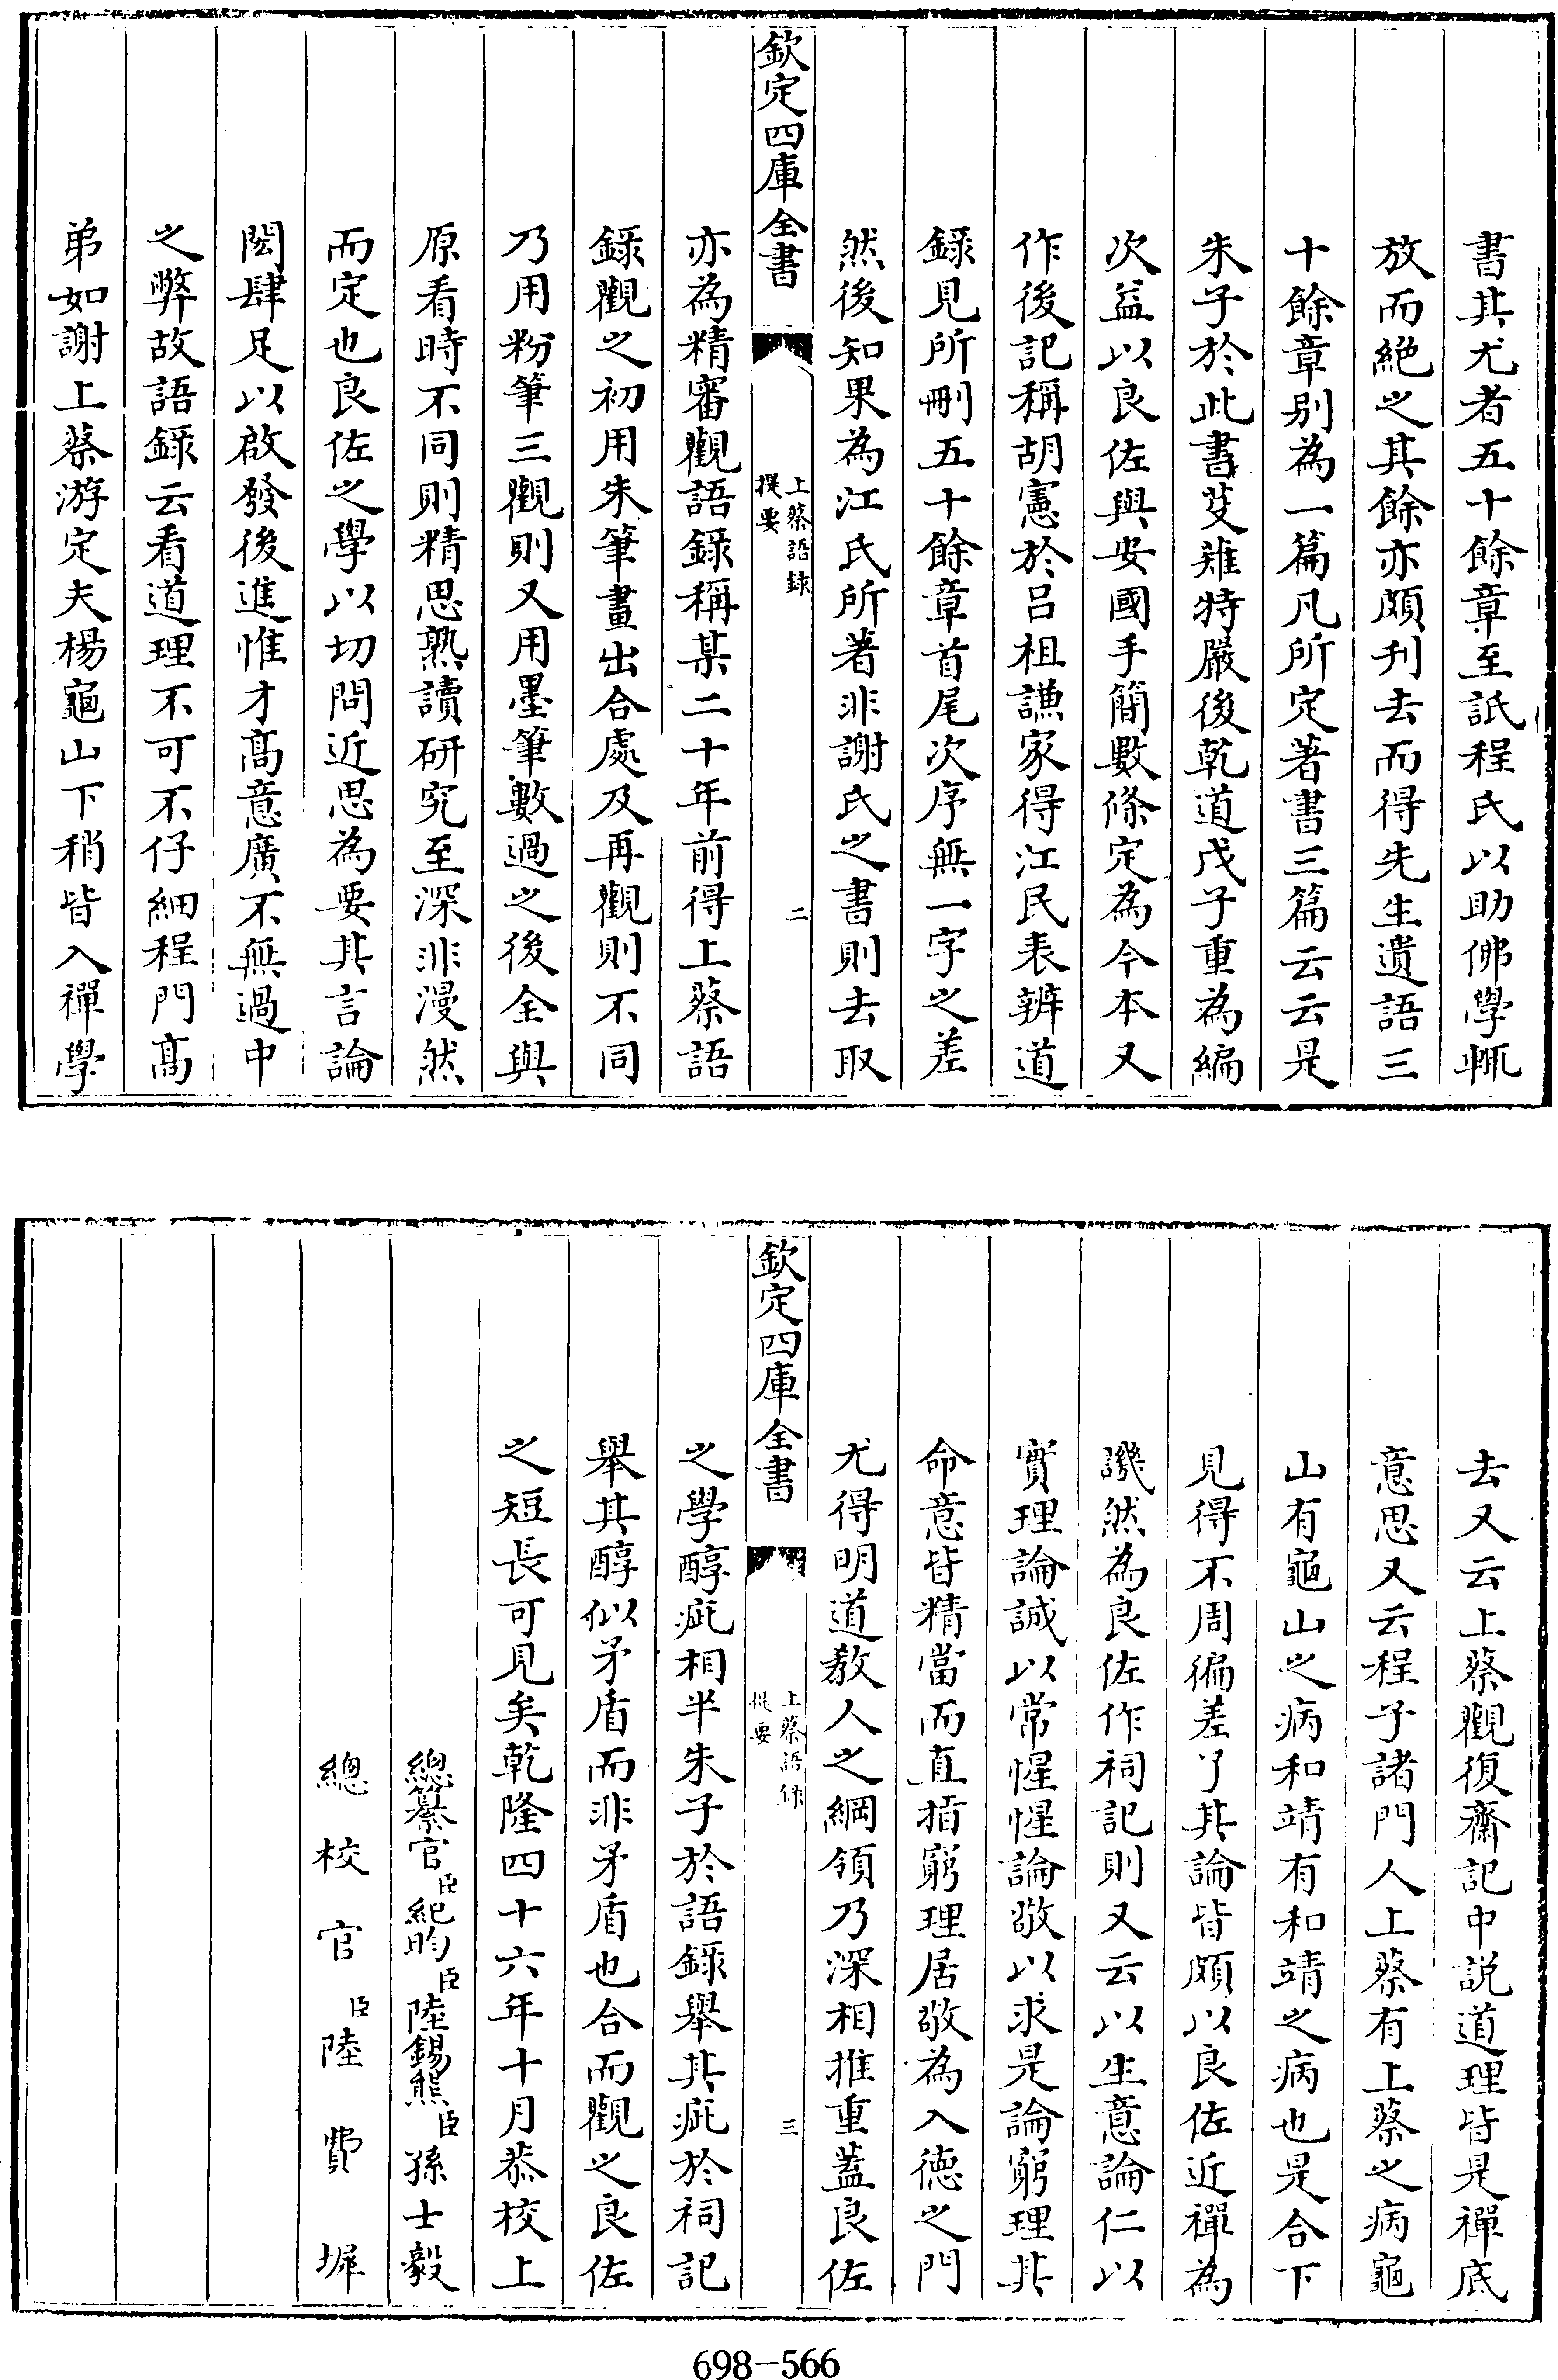 書其尤者五十餘章至詆程氏以助佛學輒
放而絶之其餘亦頗刋去而得先生遺語三
十餘章别為一篇凡所定著書三篇云云是
朱子於此書芟薙特嚴後乾道戊子重為編
次益以良佐與安國手簡數條定為今本又
作後記稱胡憲於吕祖謙家得江民表辨道
錄見所刪五十餘章首尾次序無一字之差
然後知果為江氏所著非謝氏之書則去取
欽定四庫全書
上蔡語録
提要
二
亦為精審觀語錄稱某二十年前得上蔡語
錄觀之初用朱筆畫出合處及再觀則不同
乃用粉筆三觀則又用墨筆數過之後全與
原看時不同則精思熟讀研究至深非漫然
而定也良佐之學以切問近思為要其言論
閎肆足以啟發後進惟才髙意廣不無過中
之弊故語錄云看道理不可不仔細程門髙
弟如謝上蔡游定夫楊龜山下稍皆入禪學
去又云上蔡觀復齋記中説道理皆是禪底
意思又云程子諸門人上蔡有上蔡之病龜
山有龜山之病和靖有和靖之病也是合下
見得不周徧差了其論皆頗以良佐近禪為
譏然為良佐作祠記則又云以生意論仁以
實理論誠以常惺惺論敬以求是論窮理其
命意皆精當而直指窮理居敬為入徳之門
尤得明道教人之綱領乃深相推重蓋良佐
欽定四庫全書
上蔡語録
提要
三
之學醇疵相半朱子於語錄舉其疵於祠記
舉其醇似矛盾而非矛盾也合而觀之良佐
之短長可見矣乾隆四十六年十月恭校上
總纂官臣紀昀臣陸錫熊臣孫士毅
總校官臣陸費墀
698-566